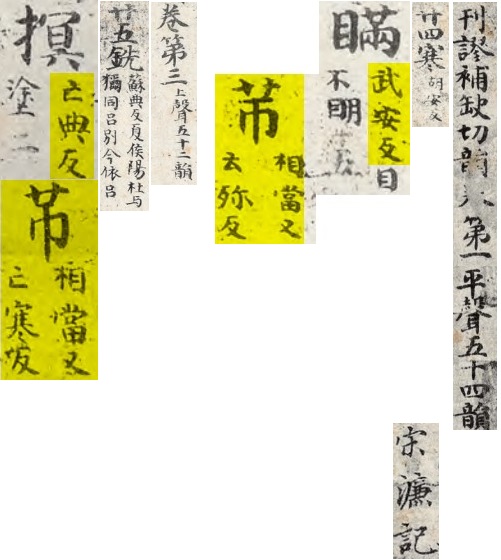 刊謬補缺切韻
第一平聲五十四韻
廿四寒胡安反
瞞武安反目
不明
芇相當又
亡殄反
卷第三上聲五十二韻
廿五銑蘇典反夏侯陽杜与
獨同呂別今依呂
亡典反
塗二
芇相當又
亡寒反
宋濂記